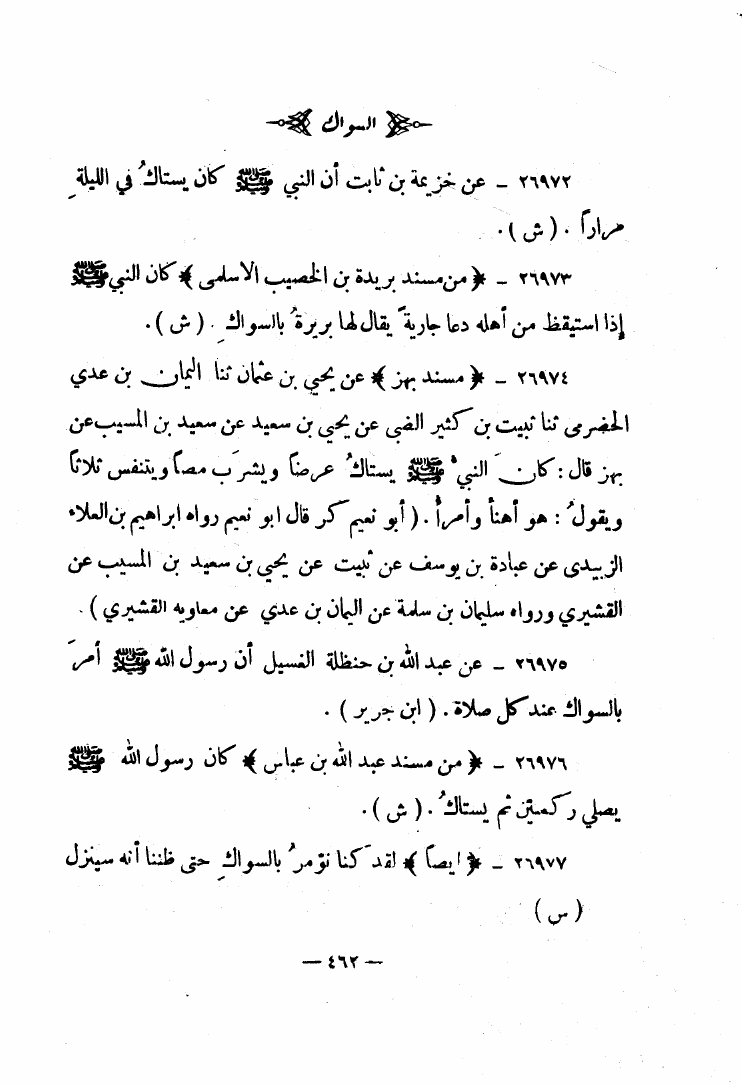 السواك
٢٦٩٧٢ ـ عن خزيمة بن ثابت أن النبي ﷺ كان يستاكُ في الليلةِ
مراراً . ( ش ) .
٢٦٩٧٣ ـ ﴿ من مسند بريدة بن الخصيب الاسلمى ﴾ كان النبي ﷺ
إذا استيقظ من أهله دعا جاريةً يقال لها بريرةُ بالسواكِ . ( ش ) .
٢٦٩٧٤ ـ ﴿ مسند بهز ﴾ عن يحيي بن عثمان ثنا اليمان بن عدي
الحضرمى ثنا ثبيت بن كثير الضبى عن يحيي بن سعيد عن سعيد بن المسيب عن
بهز قال : كانَ النبيُّ ﷺ يستاكُ عرضاً ويشرَب مصاً ويتنفس ثلاثاً
ويقولُ : هو أهنأُ وأمرأُ . ( أبو نعيم كر قال ابو نعيم رواه ابراهيم بن العلاء
الزبيدى عن عبادة بن يوسف عن ثبيت عن يحيي بن سعيد بن المسيب عن
القشيري ورواه سليمان بن سلمة عن اليمان بن عدي عن معاويه القشيري ) .
٢٦٩٧٥ ـ عن عبد الله بن حنظلة الغسيل أن رسول الله ﷺ أمرَ
بالسواك عند كل صلاة . ( ابن جرير ) .
٢٦٩٧٦ ـ ﴿ من مسند عبد الله بن عباس ﴾ كان رسول الله ﷺ
يصلي ركعتين ثم يستاكُ . ( ش ) .
٢٦٩٧٧ ـ ﴿ ايضاً ﴾ لقد كنا نؤمرُ بالسواكِ حتى ظننا أنه سينزل
( س )
— ٤٦٢ —